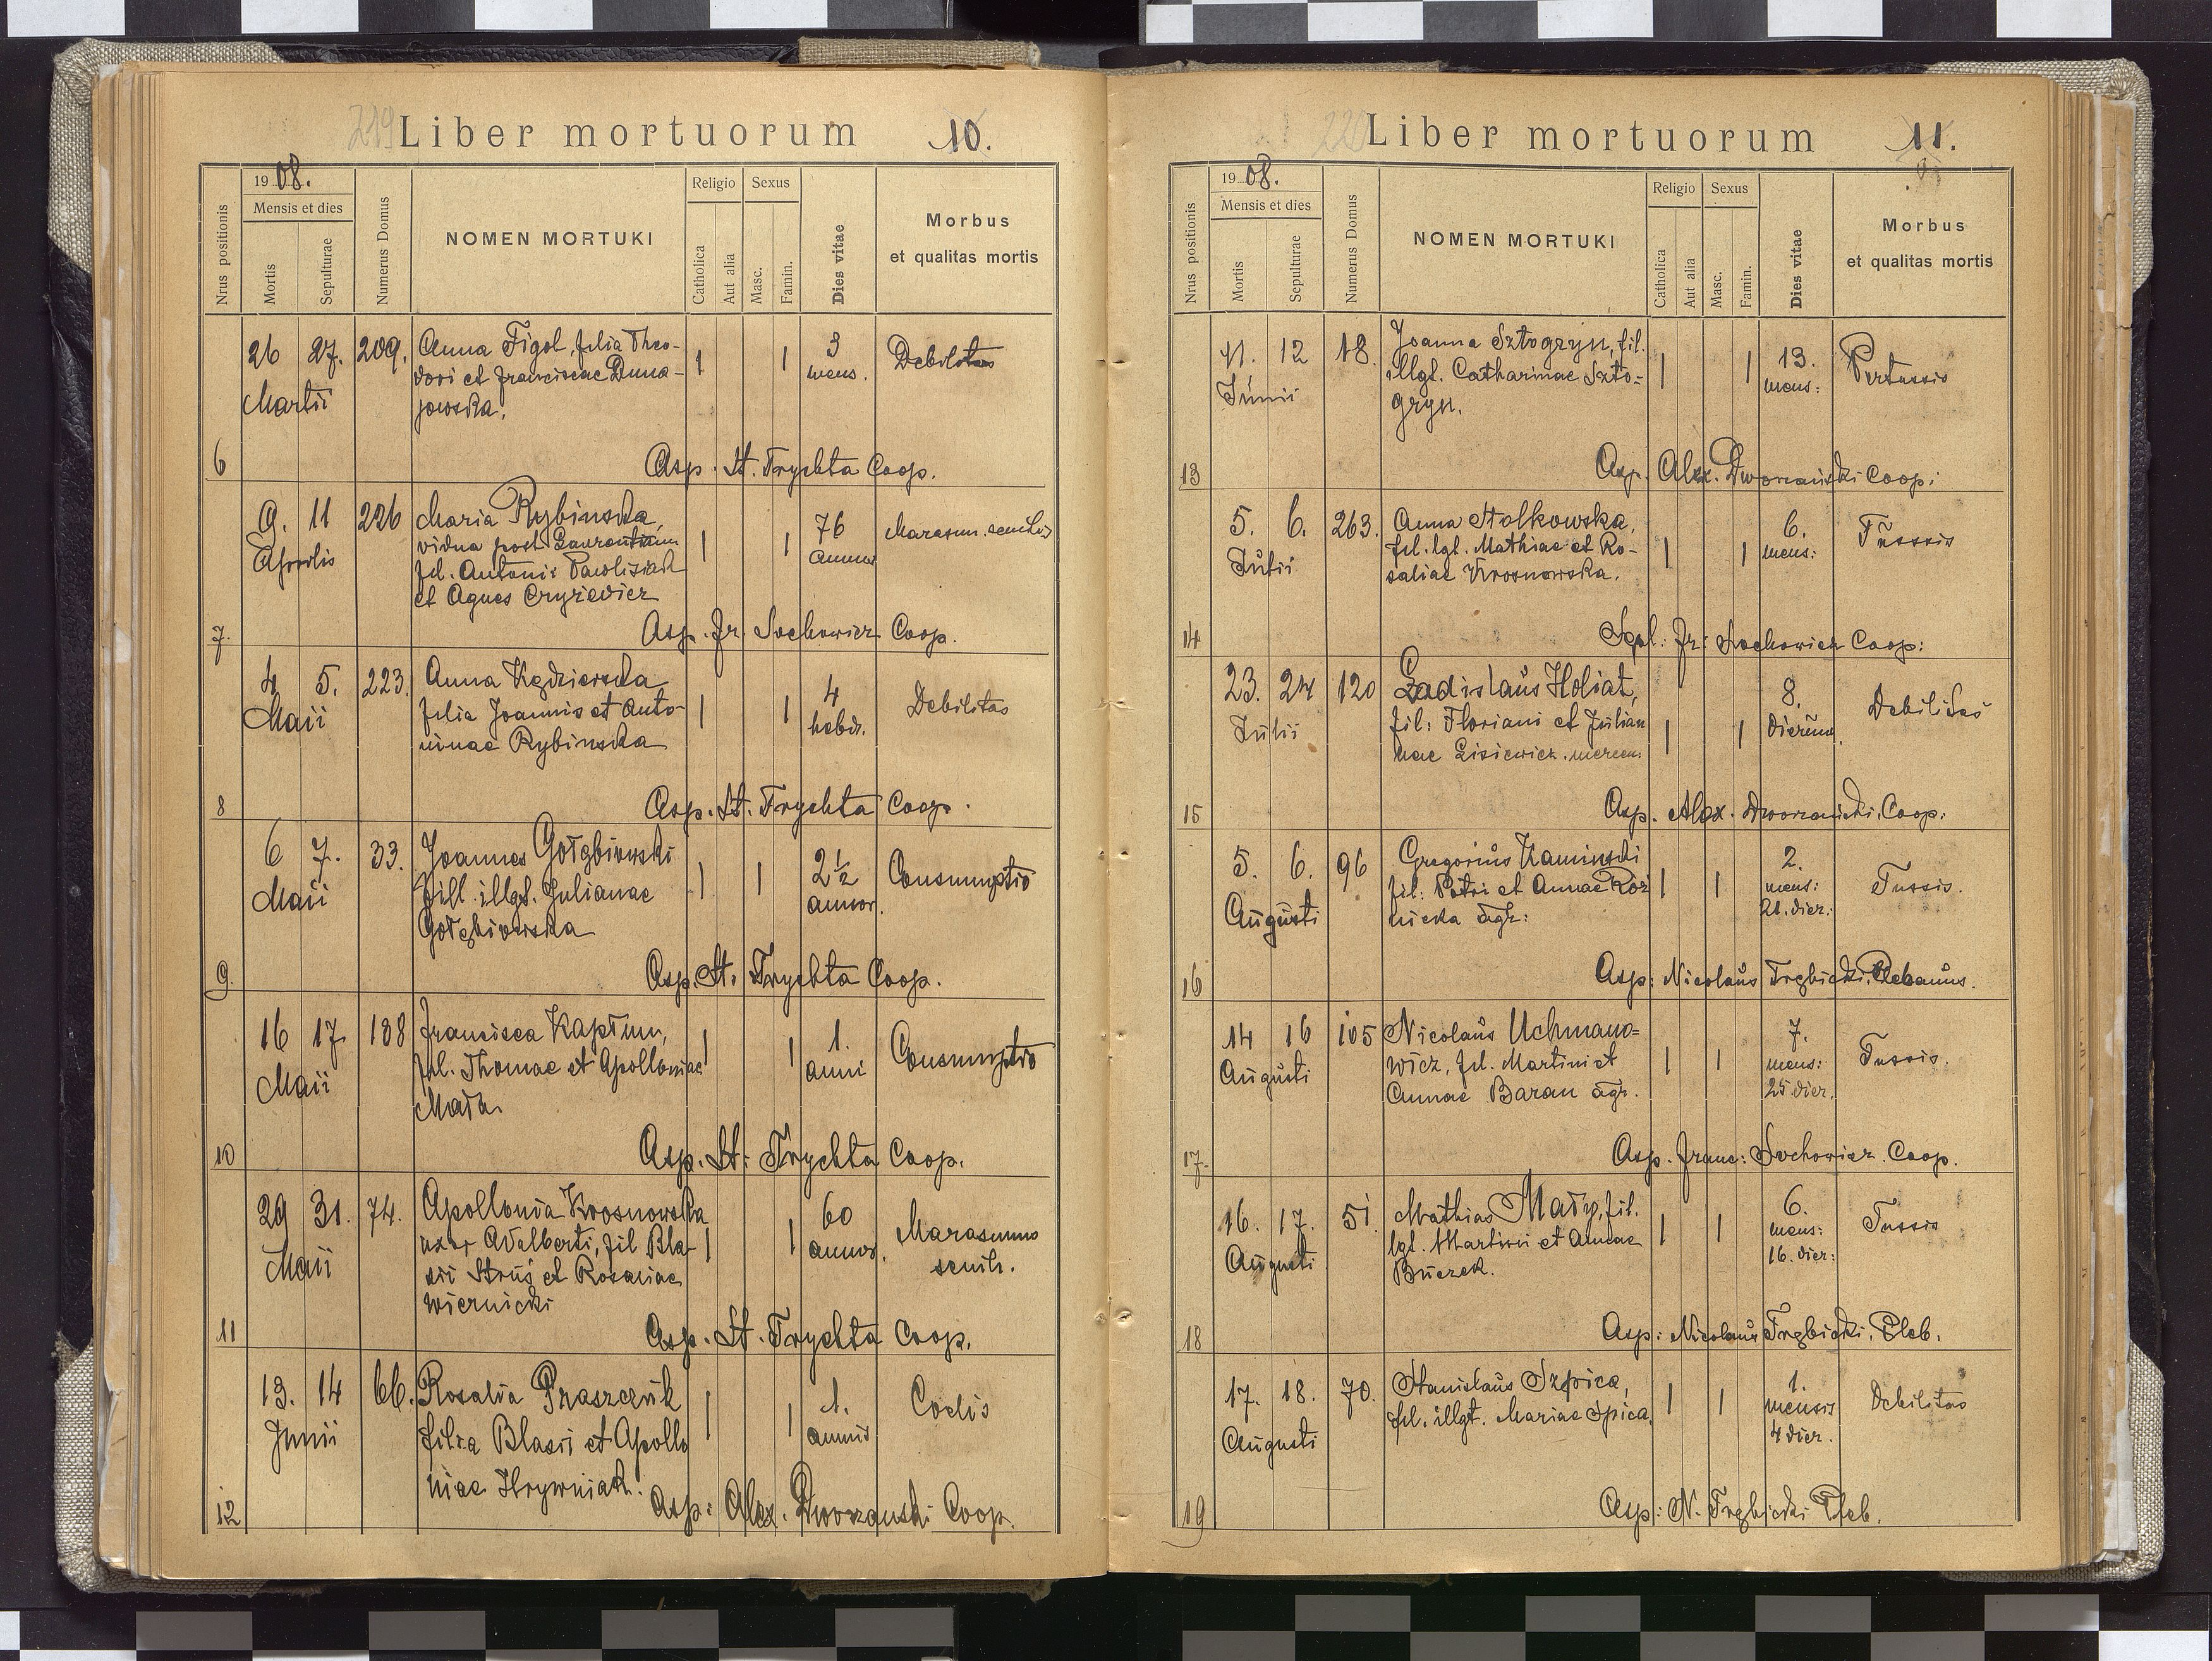 Liber mortuorum 10.
1908.
Mensis et dies
Nrus positionis
Mortis
Sepulturae
Numerus Domus
NOMEN MORTUKI
Religio
Catholica
Aut alia
Sexus
Masc.
Famin.
Dies vitae
Morbus
et qualitas mortis
26 27. 209. Anna Figol, filia Theo-
Martii
dori et Franciscae Duna-
jowska.
1 1
3
mens.
Debilitas
6 Asp. St. Trychta Coop.
9. 11 226 Maria Rybinska,
Aprilis
vidua post Laurentium
fil. Antonii Pawliszak
et Agnes Cryziewicz
1 1
76
annor
Marasm. senilis
7. Asp. Fr. Sochowicz Coop.
4 5. 223. Anna Kędzierska
Maii
filia Joannis et Anto-
ninae Rybinska
1 1
4
hebd.
Debilitas
8 Asp. St. Trychta Coop.
6 7. 33. Joannes Gołębiowski
Maii
fill. illgt. Julianae
Gołębiowska
1 1
2 1/2
annor.
Consumptio
9. Asp. St. Trychta Coop.
16 17 188 Francisca Kaptun,
Maii
fil. Thomae et Apolloniae
1 1
1.
anni
Consumptio
10 Asp. St. Trychta Coop.
29 31. 74. Apollonia Krosnowska
Maii
uxor Adalberti, fil Bla-
sii Struś et Rosaliae
Wiernicki
1 1
60
annor.
Marasmus
senil.
11 Asp. St. Trychta Coop.
13. 14 66. Rosalia Praszczuk
Junii
filia Blasii et Apollo
niae Hrywniak.
1 1
1.
anni
12 Asp: Alex. Dworzanski Coop.
Liber mortuorum 11.
1908.
Mensis et dies
Nrus positionis
Mortis
Sepulturae
Numerus Domus
NOMEN MORTUKI
Religio
Catholica
Aut alia
Sexus
Masc.
Famin.
Dies vitae
Morbus
et qualitas mortis
11. 12 18. Joanna Sztogryn, fil.
Junii
illgt. Catharinae Szto-
gryn.
1 1
13.
mens:
Pertussis
13 Asp. Alex. Dworzański Coop:
5. 6. 263. Anna Stolkowska,
Julii
fil. lgt. Mathiae et Ro-
saliae Krosnowska.
1 1
6.
mens:
Tussis
14 Sepl: Fr: Sochowicz Coop:
23. 24 120 Ladislaus Holiat,
Julii
fil: Floriani et Julian
nae Lisiewicz, mercen.
1 1
8.
dierum
Debilitas
15 Asp. Alex. Dworzański, Coop:
5. 6. 96 Gregorius Kaminski
Augusti
fil: Petri et Annae Koź
nicka agr:
1 1
2.
mens:
21. dier:
Tussis.
16 Asp: Nicolaus Trębicki, Plebanus.
14 16 105 Nicolaus Uchmano-
Augusti
wicz, fil. Martini et
Annae Baran agr.
1 1
7.
mens:
25 dier.
Tussis.
17. Asp. Franc: Sochowicz Coop.
16. 17. 51 Mathias Mały, fil.
Augusti
lgt. Martini et Annae
Buczek.
1 1
6.
mens:
16. dier:
Tussis
18 Asp: Nicolaus Trębicki, Pleb.
17. 18. 70. Stanislaus Szpica,
Augusti
fil. illgt. Mariae Spica.
1 1
1.
mensis
4 dier.
Debilitas
19 Asp: N. Trębicki Pleb.